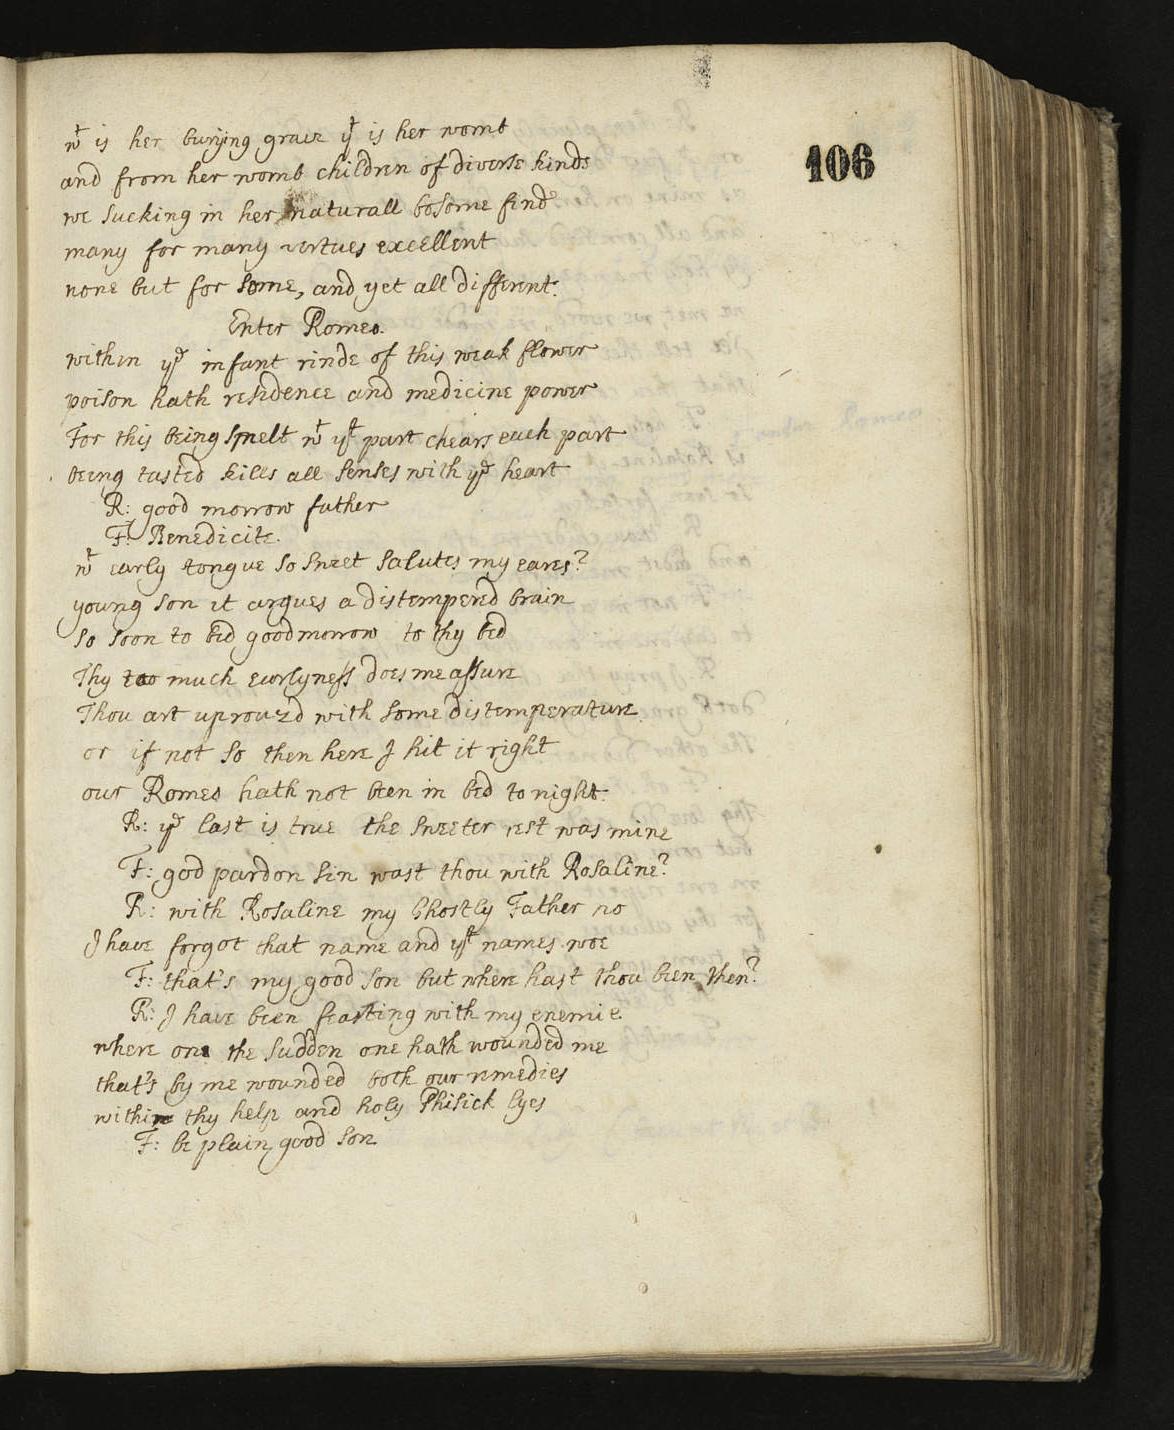 106
wt is her burying grave yt is her womb
and from her womb children of diverse kinds
we sucking in her naturall bosome find
many for many vertues excellent
none but for some, and yet all different.
Enter Romeo.
within ye infant rinde of this weak flower
poison hath residence and medicine power
For this being smelt wt yt part chears each part
being tasted kills all senses with ye heart
R: good morrow father
F: Benedicite.
wt early tongue so sweet salutes my eares?
young son it argues a distempered brain
so soon to bid goodmorrow to thy bed
Thy too much earlyness does me assure
Thou art uprouzd with some distemperature
or if not so then here I hit it right
our Romeo hath not been in bed to night.
R: ye last is true the sweeter rest was mine
F: god pardon sin wast thou with Rosaline?
R: with Rosaline my Ghostly Father no
I have forgot that name and yt names woe
F: that's my good son but where hast thou been then?
R: I have been feasting with my enemie
where one the sudden one hath wounded me
that's by me wounded both our remedies
within thy help and holy Phisick lyes
F: be plain good son